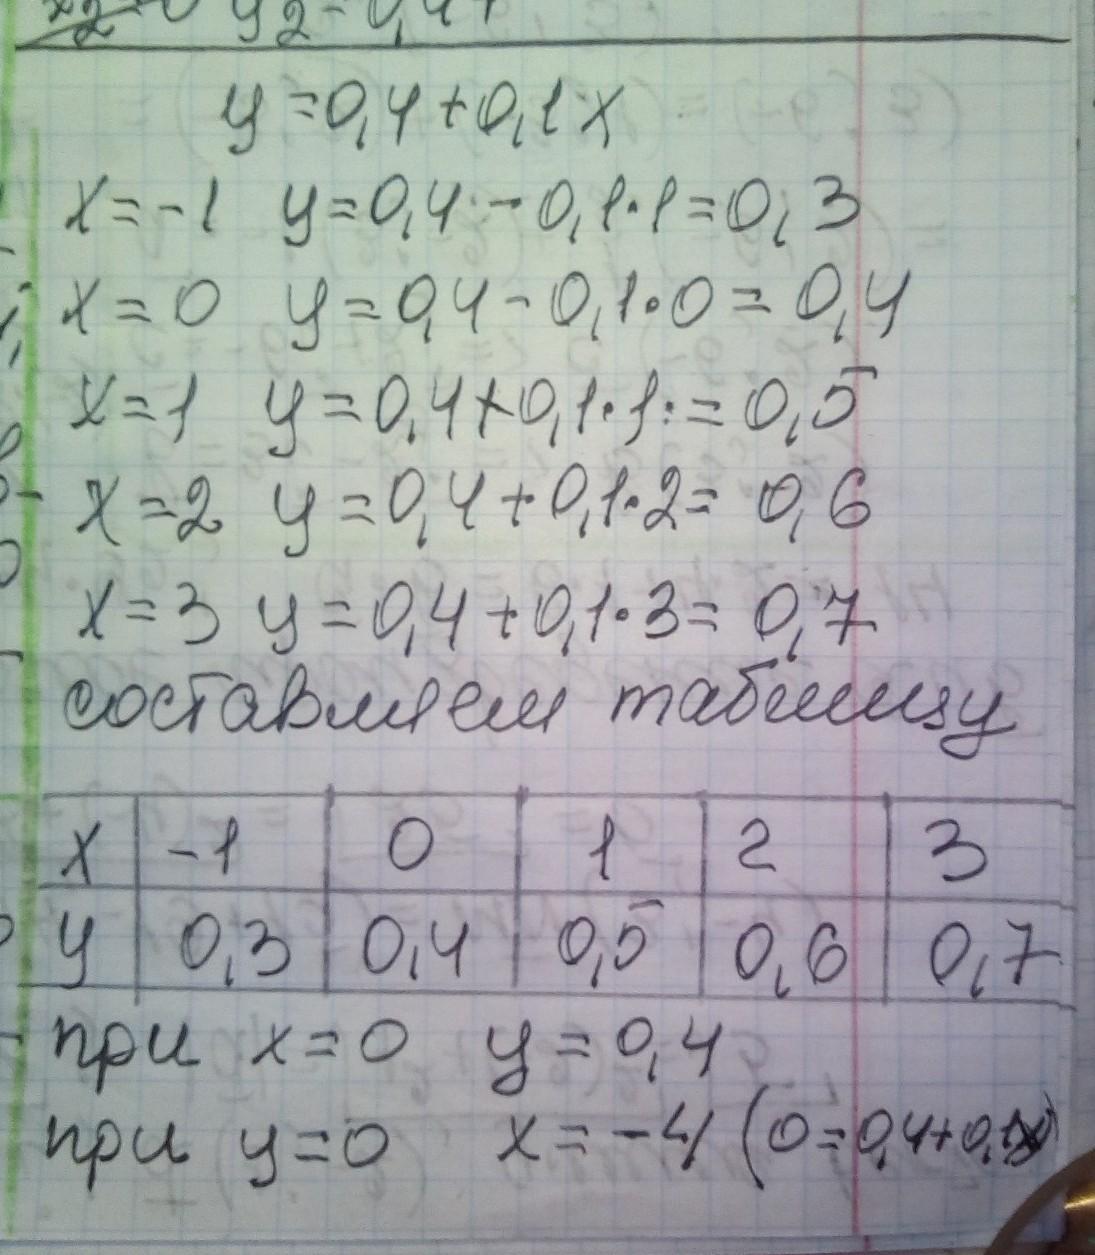 y=0,4+0,1x
x=-1 y=0,4-0,1·1=0,3
x=0 y=0,4-0,1·0=0,4
x=1 y=0,4+0,1·1=0,5
x=2 y=0,4+0,1·2=0,6
x=3 y=0,4+0,1·3=0,7
составляем таблицу
x -1 0 1 2 3
y 0,3 0,4 0,5 0,6 0,7
при x=0 y=0,4
при y=0 x=-4 (0=0,4+0,1x)